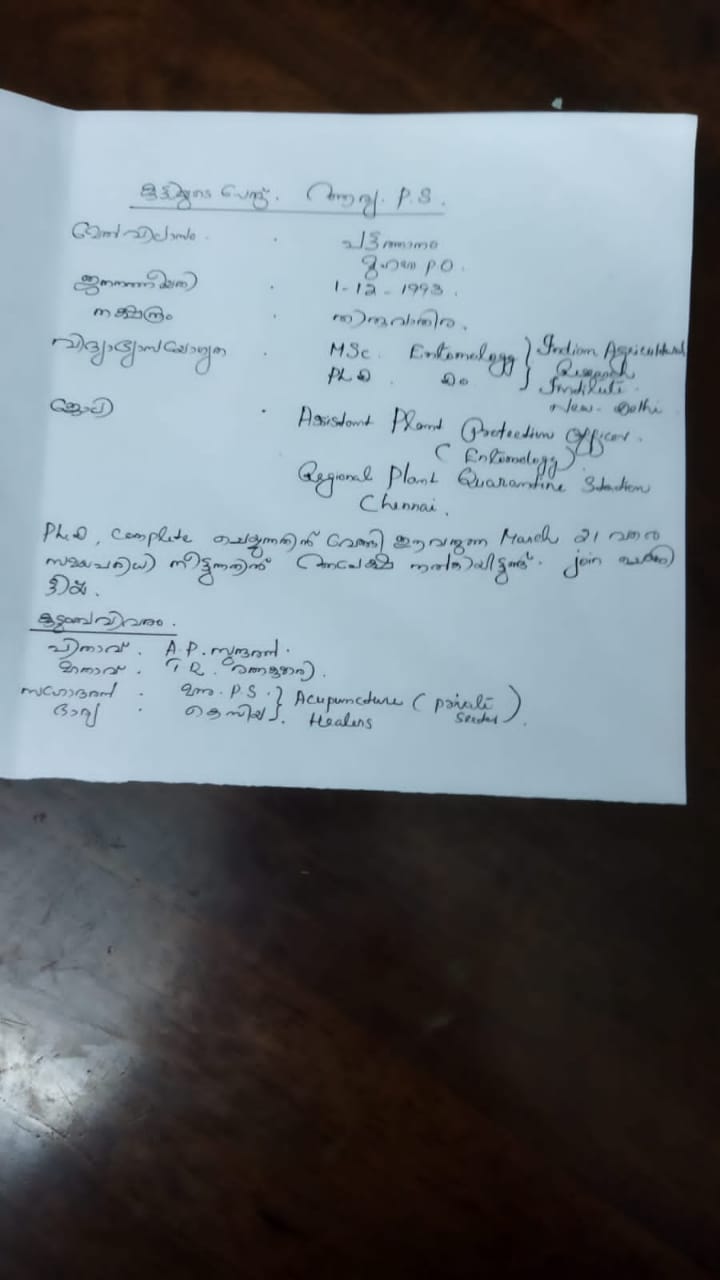 കുട്ടിയുടെ പേര്. P.S.
മേൽവിലാസം .
P O.
ജനനതീയതി . 1-12-1993.
നക്ഷത്രം . തിരുവാതിര.
വിദ്യാഭ്യാസയോഗ്യത . MSc. Entomology } Indian Agricultural
Ph.D. } Research
Institute
New Delhi.
ജോലി . Assistant Plant Protection Officer.
(Entomology)
Regional Plant Quarantine Station
Chennai.
Ph.D, Complete ചെയ്യുന്നതിന് വേണ്ടി ഈ വരുന്ന March 21 വരെ
സമയപരിധി നീട്ടുന്നതിന് അപേക്ഷ നൽകിയിട്ടുണ്ട്. join ചെയ്തി
ട്ടില്ല.
കുടുംബവിവരം.
പിതാവ് . A.P. സുന്ദരൻ.
മാതാവ് . T R.
സഹോദരൻ . P.S. } Acupuncture (private
ഭാര്യ . } Healers sector).